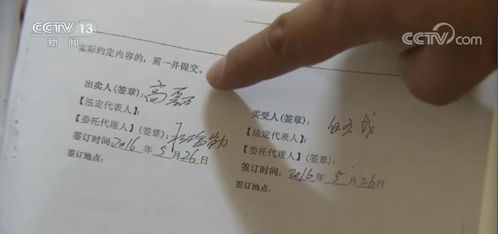 CCTV 13
新闻
CCTV.com
实际约定内容的，需一并提交。
出卖人(签章)：高磊
【法定代表人】：
【委托代理人】(签章)：
签订时间：2016 年 5 月 26 日
签订地点：
买受人(签章)：
【法定代表人】：
【委托代理人】(签章)：
签订时间：2016 年 5 月 26 日
签订地点：